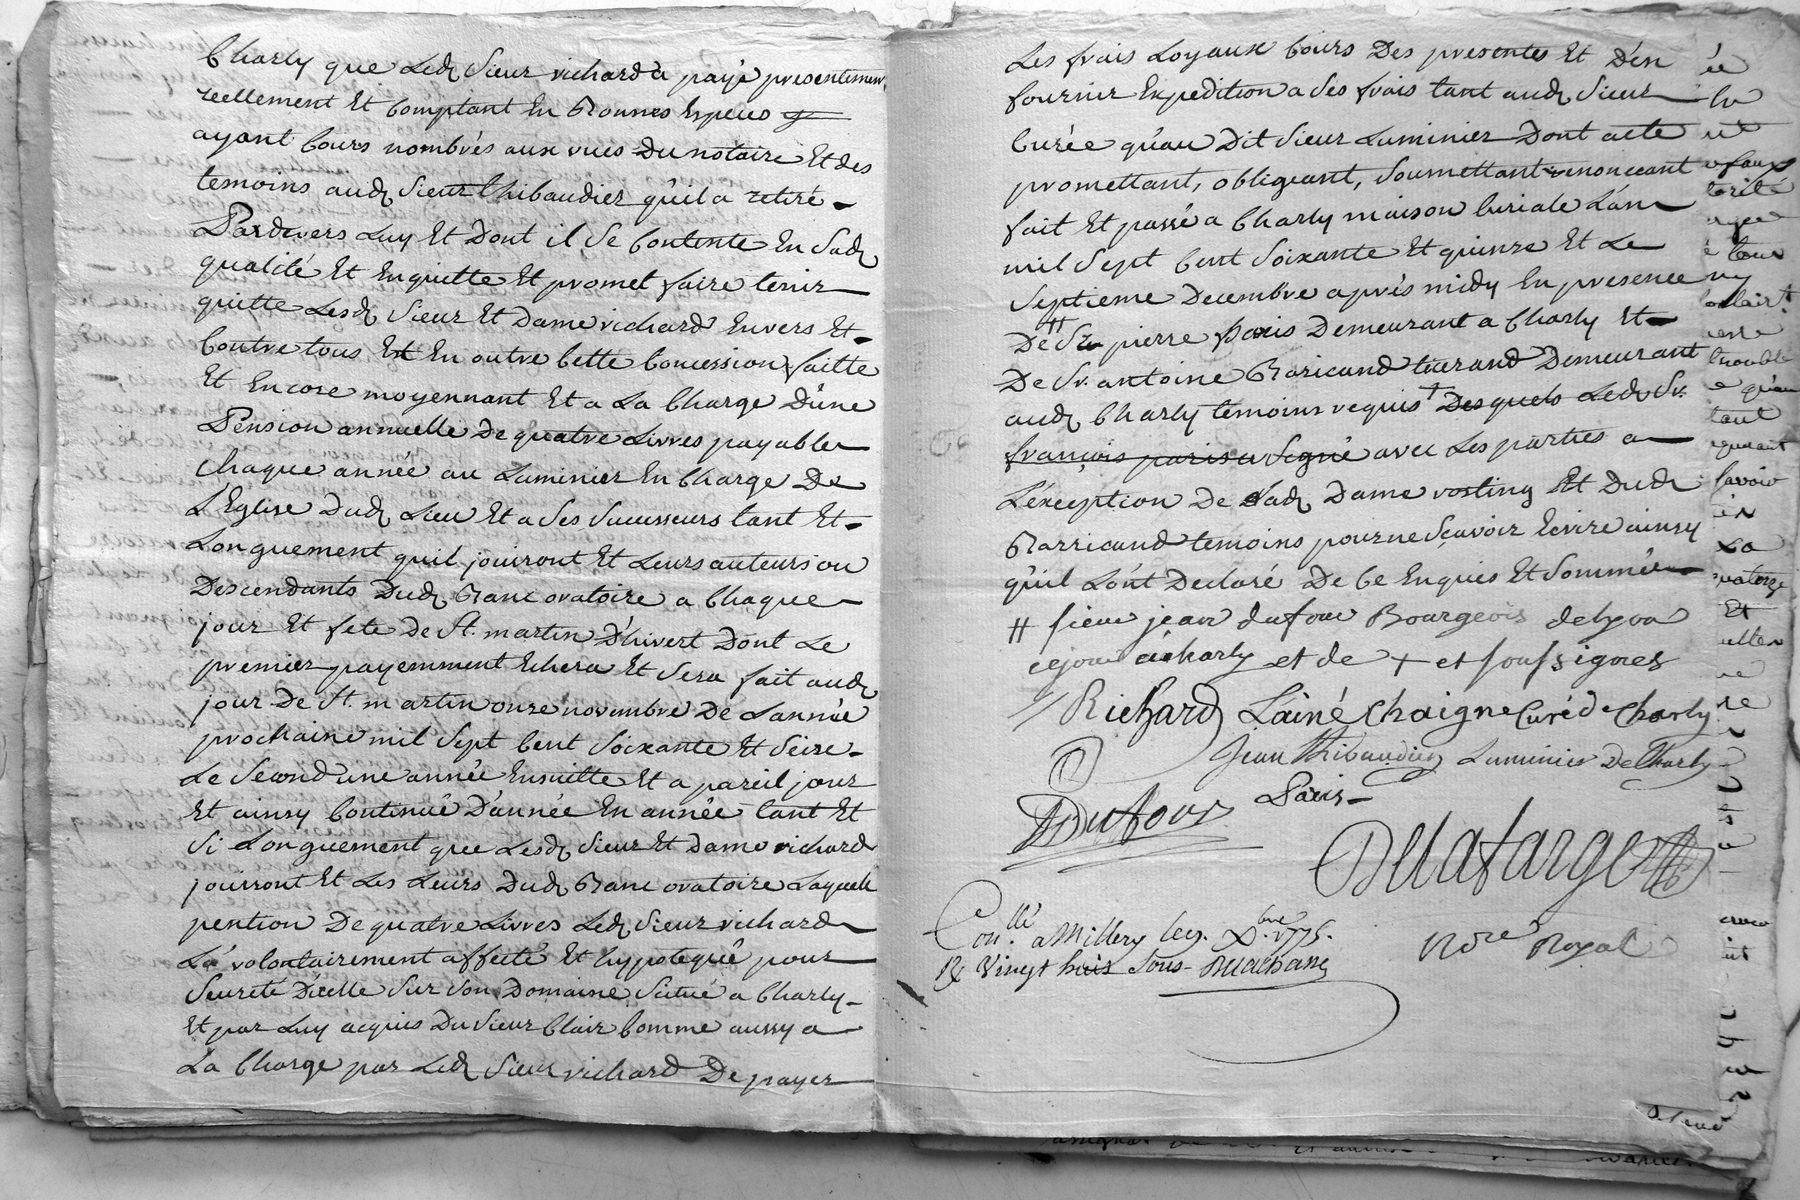 Charly que Ledt Sieur richard a payé presentement
reellement Et Comptant En Bonnes Especes
ayant Cours nombrés aux vues Du notaire Et des
temoins audt Sieur thibaudier qu'il a retiré
Pardevers Luy Et Dont il Se Contente En Sadt
qualité Et En quitte Et promet faire tenir
quitte Lesdt Sieur Et Dame richard Envers Et
Contre tous Et En outre Cette Concession faitte
Et Encore moyennant Et a La Charge D'une
Pension annuelle De quatre Livres payable
Chaque année au Luminier En Charge De
L'Eglise Dudt Lieu Et a Ses Successeurs tant Et
Longuement quil jouiront Et Leurs auteurs ou
Descendants Dudt Banc oratoire a Chaque
jour Et fete De St. martin D'hivert Dont Le
premier payemment Echera Et Sera fait audt
jour De St. martin onze novembre De Lannée
prochaine mil Sept Cent Soixante Et Seize
Le Second une année Ensuitte Et a pareil jour
Et ainsy Continué D'année En année tant Et
Si Longuement que Lesdt Sieur Et Dame richard
jouiront Et Les Leurs Dudt Banc oratoire Laquelle
pention De quatre Livres Ledt Sieur richard
La volontairement affecté Et hypotequé pour
Seureté D'icelle Sur Son Domaine Scitué a Charly
Et par Luy acquis Du Sieur Clair Comme aussy a
La Charge par Ledt Sieur richard De payer
Les frais Loyaux Cours Des presentes Et D'en
fournir Expedition a Ses frais tant audt Sieur
Curée qu'au Dit Sieur Luminier Dont acte
promettant, obligeant, Soumettant renonceant
fait Et passé a Charly maison Curiale L'an
mil Sept Cent Soixante Et quinze Et Le
Septieme Decembre après midy En presence
De # Sr pierre paris Demeurant a Charly Et
De Sr. antoine Baricand Demeurant
audt Charly temoins requis + Desquels Ledt Sr.
françois paris a Signé avec Les parties a
L'exception De Ladt Dame rosting Et Dudt
Barricand temoins pour ne Sçavoir Ecrire ainsy
qu'il L'ont Declaré De Ce Enquis Et Sommés
# sieur jean dufour Bourgeois de lyon
a charly et de + et soussignes
Richard Lainé Chaigne Curé de Charly
Jean Thibaudier Luminier De Charly
Dufour Paris
Delafarge
Conllé a Millery le 9. Xbre 1775.
R Vingt huit Sous Delachassé
Nore Royal